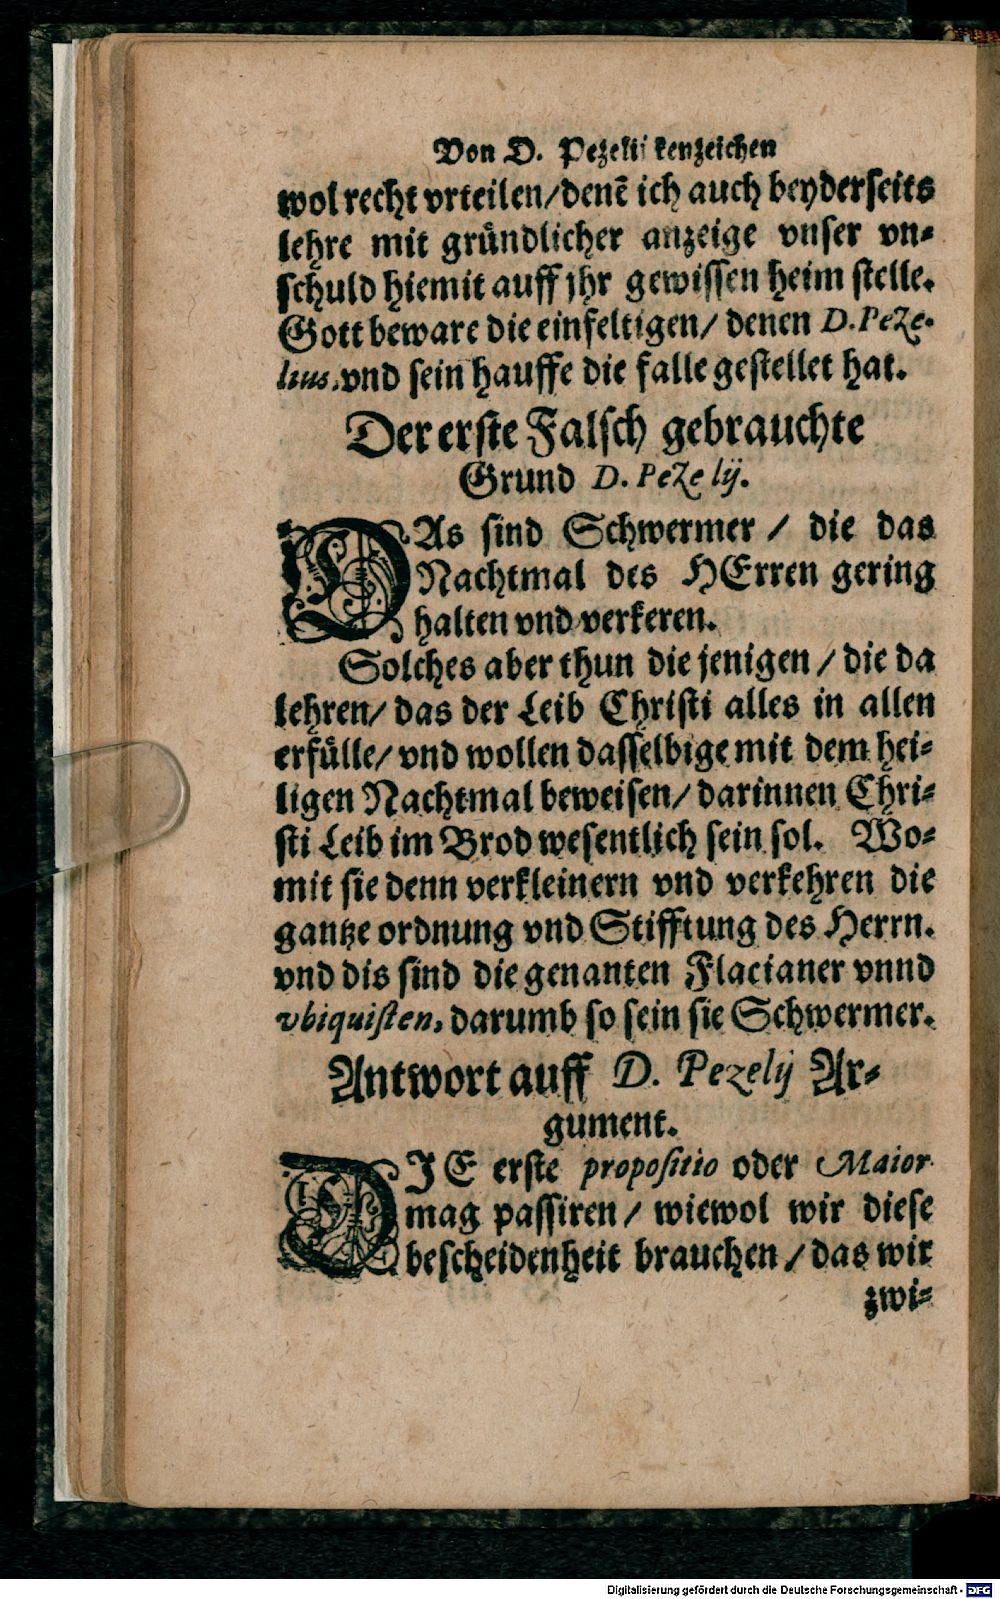 Von D. Pezelii kenzeichen
wol recht vrteilen/denē ich auch beyderseits
lehre mit gründlicher anzeige vnser vn-
schuld hiemit auff jhr gewissen heim stelle.
Gott beware die einfeltigen/ denen D. Peze-
lius, vnd sein hauffe die falle gestellet hat.
Der erste Falsch gebrauchte
Grund D. Pezelij.
DAs sind Schwermer / die das
Nachtmal des HErren gering
halten vnd verkeren.
Solches aber thun die jenigen / die da
lehren/ das der Leib Christi alles in allen
erfülle/ vnd wollen dasselbige mit dem hei-
ligen Nachtmal beweisen/ darinnen Chri-
sti Leib im Brod wesentlich sein sol. Wo-
mit sie denn verkleinern vnd verkehren die
gantze ordnung vnd Stifftung des Herrn.
vnd dis sind die genanten Flacianer vnnd
vbiquisten, darumb so sein sie Schwermer.
Antwort auff D. Pezelij Ar-
gument.
DJE erste propositio oder Maior
mag passiren / wiewol wir diese
bescheidenheit brauchen / das wir
zwi-
Digitalisierung gefördert durch die Deutsche Forschungsgemeinschaft - DFG